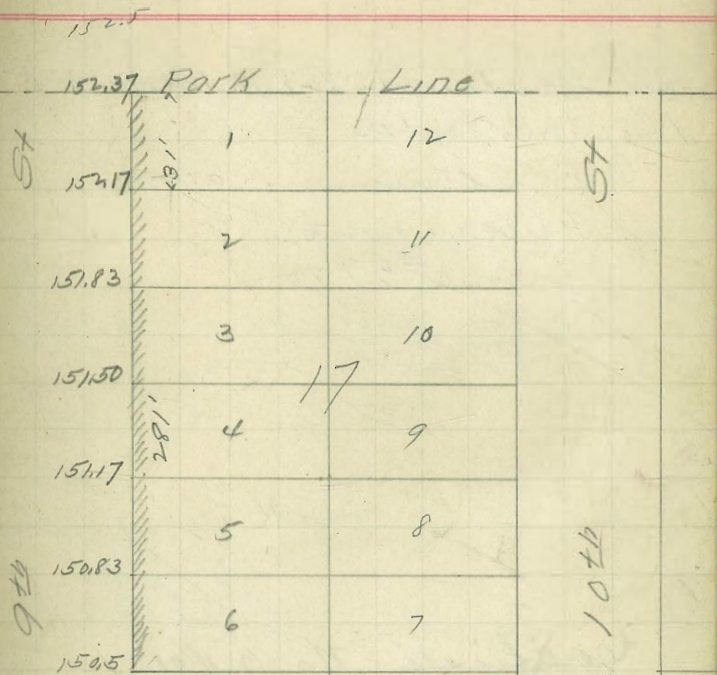 152.5
152.37 Park Line
1 12
St 31' St
152.17
2 11
151.83
3 10
151.50
17
281' 4 9
151.17
5 8
150.83
9th 10th
6 7
150.5